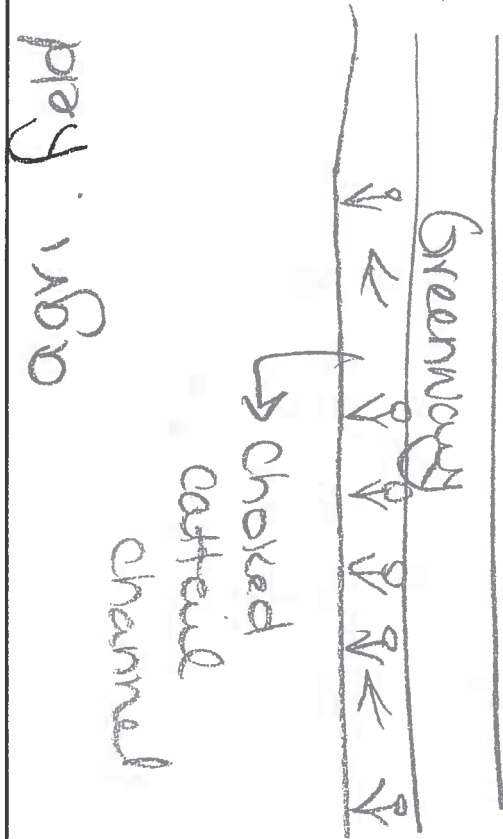 Greenway
choked
cattail
channel
agri. field